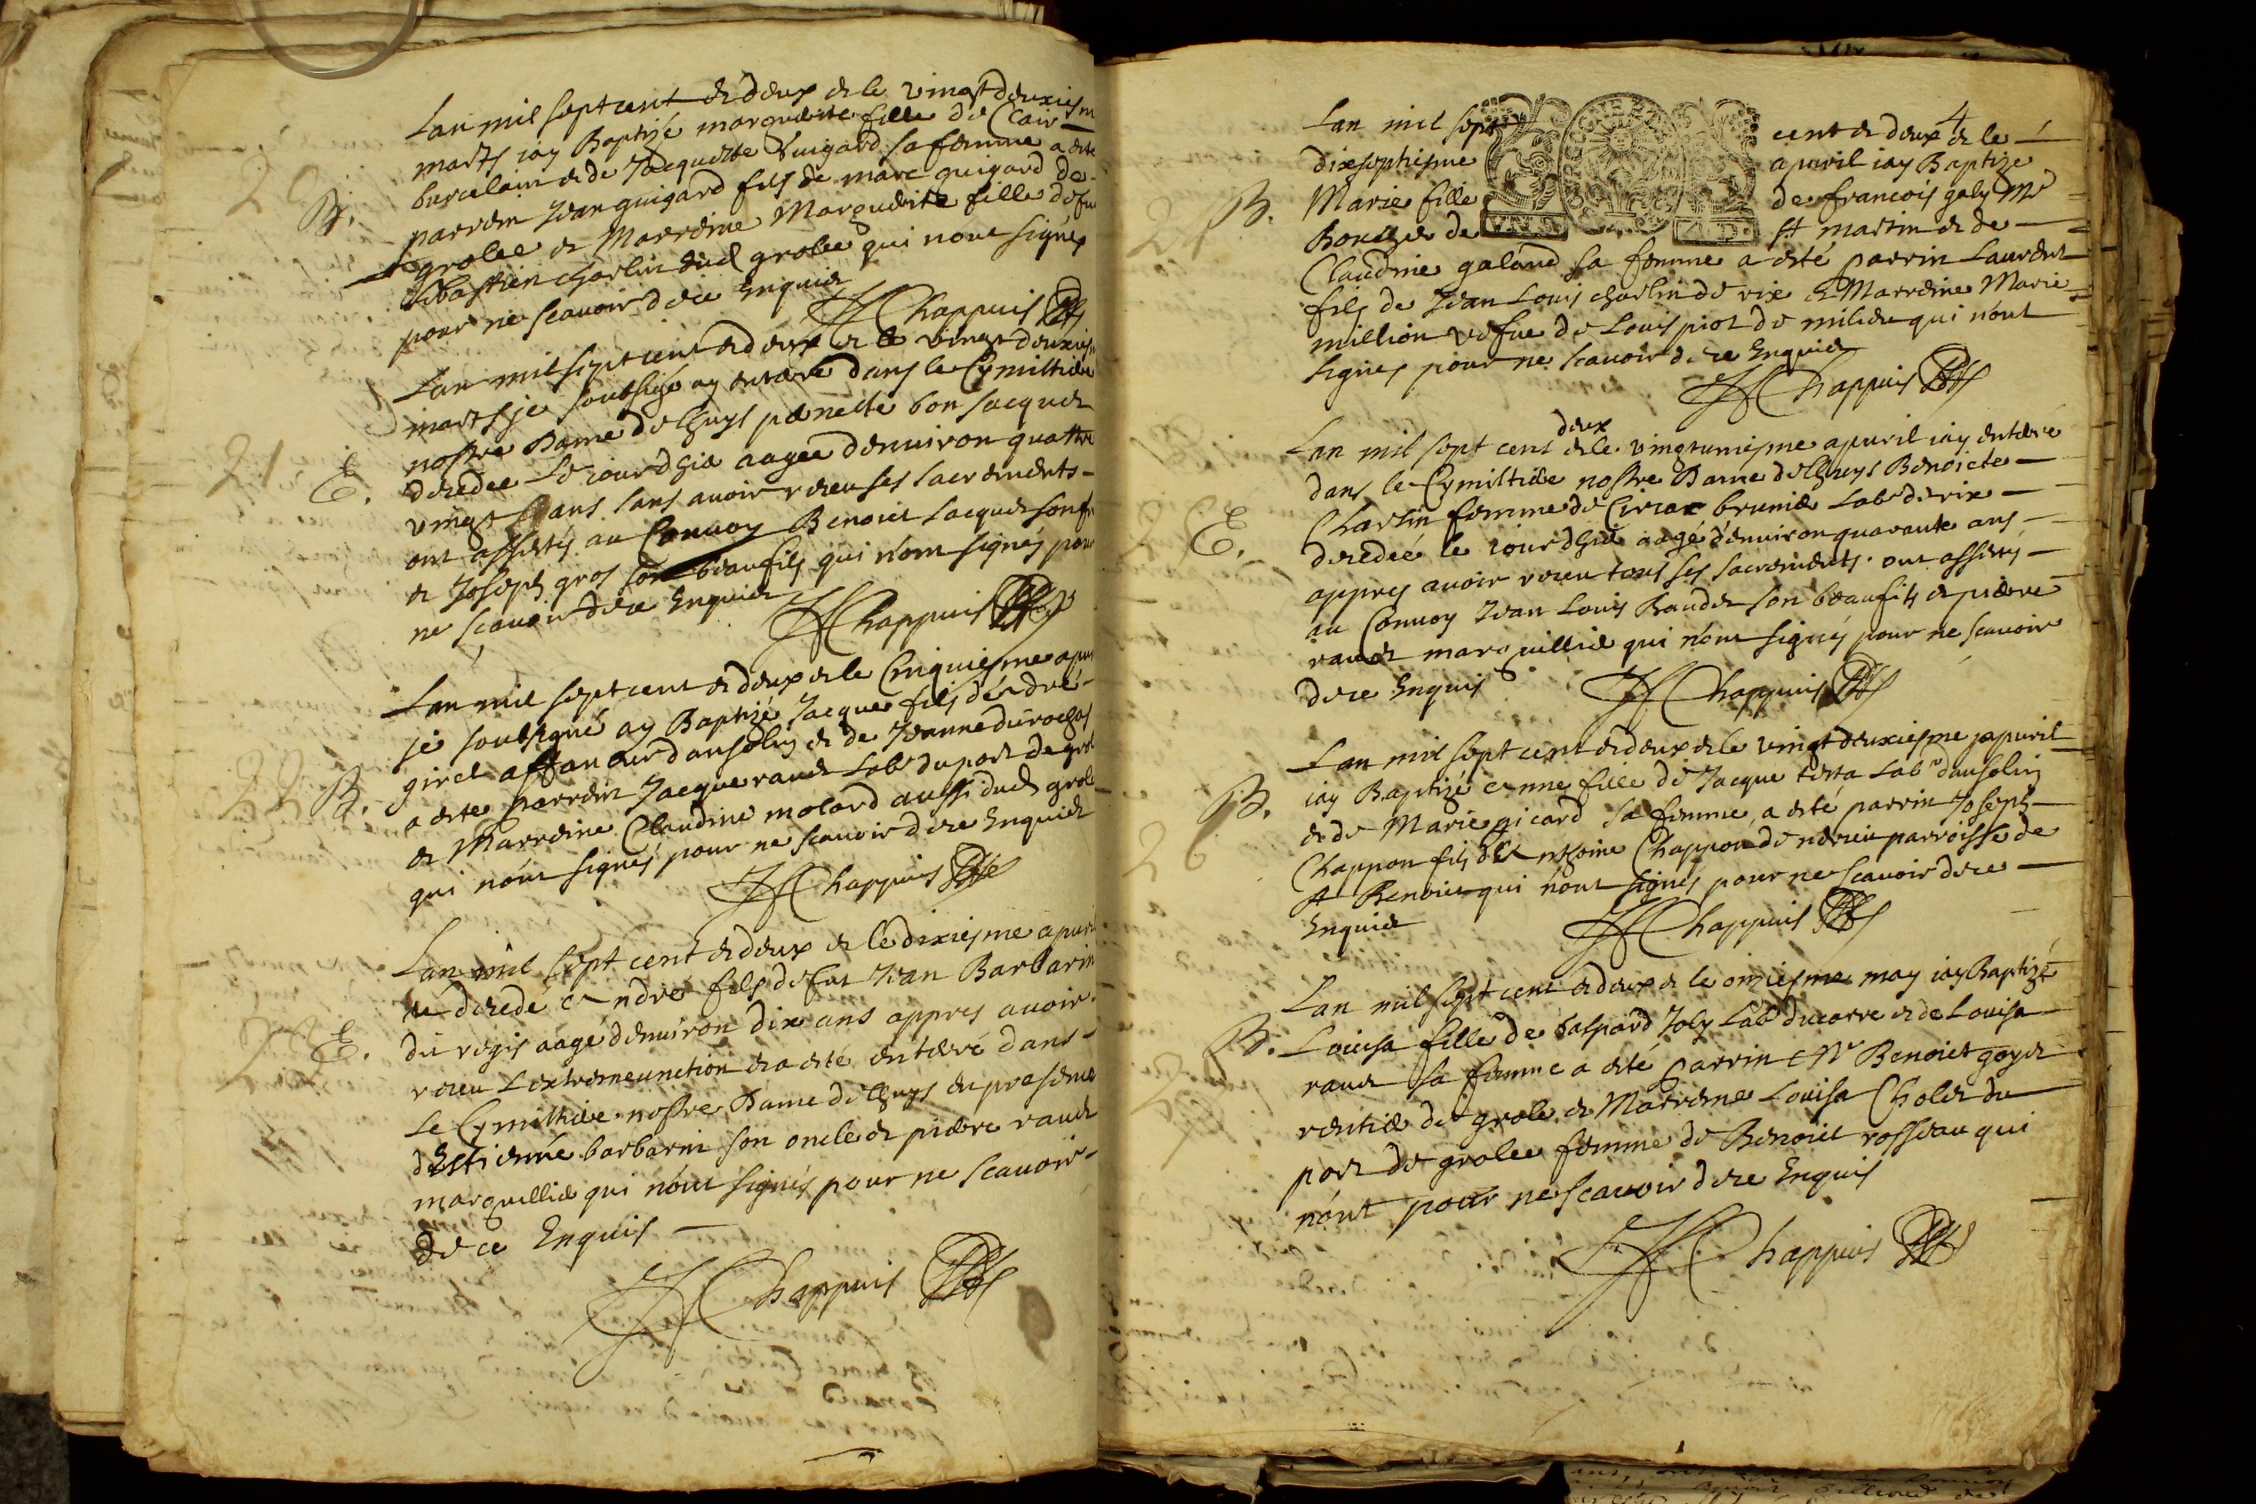 Lan mil sept cent et deux et le vingt deuxiesm
marts iay Baptizé marguerite fille de Clair
burcelain et de Jacquette guigard sa femme a esté
20
B.
parrein Jean guigard fils de marc guigard de
grolee et Marreine Marguerite fille de feu
sibastien charlin dud grolee qui nont signés
pour ne scavoir de ce Enquier
Chappuis
Lan mil sept cent et deux et le vingt deuxies
marts je soubsigé ay enterré dans le Cymiltiere
nostre Dame de lhuys pernette bon jacquet
21
E.
decedee Le jour dhier aagée denuiron quattre
vingt ans sans avoir receu ses sacrements
ont assistés au Convoy Benoict Jacquet son f
et Joseph gros son beaufils qui n'ont signés pour
ne scavoir de ce Enquier
Chappuis
Lan mil sept cent et deux et le Cinquiesme apu
je soubsigné ay Baptizé Jacque fils d'andré
giret affanour danfolin et de Jeanne durochas
22
B.
a esté parrein Jacque raud Labr du port de grol
et Marreine Claudine molard aussi dud grol
qui nónt signés pour ne scavoir de ce Enquier
Chappuis
Lan mil sept cent et deux et le dixiesme apuril
est decedé Andre fils de feu Jean Barbarin
23
E.
du regis aagé denuiron dix ans appres avoir
receu Lextremeunction et a esté enterré dans
Le Cymiltiere nostre Dame de lhuys en presence
dEstienne barbarin son oncle et pierre raud
marquillier qui nónt signés pour ne scavoir
de ce Enquis
Chappuis
4
Lan mil sept cent et deux et le
dixseptiesme apuril iay Baptize
24
B.
Marie fille de francois galy Mr
Boucher de St martin et de
Claudine galand sa femme a esté parrin Laurent
fils de Jean Louis charlin de rix et Marreine Marie
million vefue de Louis piot de milieu qui nónt
signes pour ne scavoir de ce Enquier
Chappuis
deux
Lan mil sept cent et le vingtuniesme apuril iay enterré
dans le Cymiltiere nostre Dame de lhuys Benoicte
25
E.
Charlin femme de Ciriac brunier Labr de rix
decedeé le iour dhier aagé denuiron quarante ans
appres avoir receu tous ses sacrements. ont assistés
au Convoy Jean Louis Baudet son beaufils et pierre
raud marquillier qui nónt signés pour ne scavoir
de ce Enquis
Chappuis
Lan mil sept cent et deux et le vingt deuxiesme japuril
B.
iay Baptizé Anne fille de Jacque testa Labr danfolin
et de Marie picard sa femme, a esté parrin Joseph
26
Chappon fils dAnthoine Chappon de nerieu parroisse de
St Benoict qui nónt signés pour ne scavoir de ce
Enquier
Chappuis
Lan mil sept cent et deux et le onziesme may iay Baptizé
27
B.
Louisa fille de Gaspard Joly Labr ducorre et de Louisa
raud sa femme a esté parrin Mr Benoict goyet
rentier de grolee et Marreine Louisa Cholet du
port de grolee femme de Benoict rosseau qui
nónt pour ne scavoir de ce Enquis
Chappuis